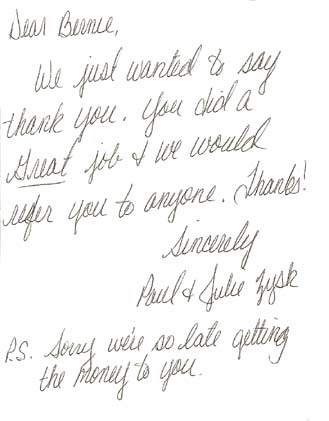 Dear Bernie,
We just wanted to say
thank you. You did a
Great job & we would
refer you to anyone. Thanks!
Sincerely
Paul & Julie Zysk
P.S. Sorry we're so late getting
the money to you.